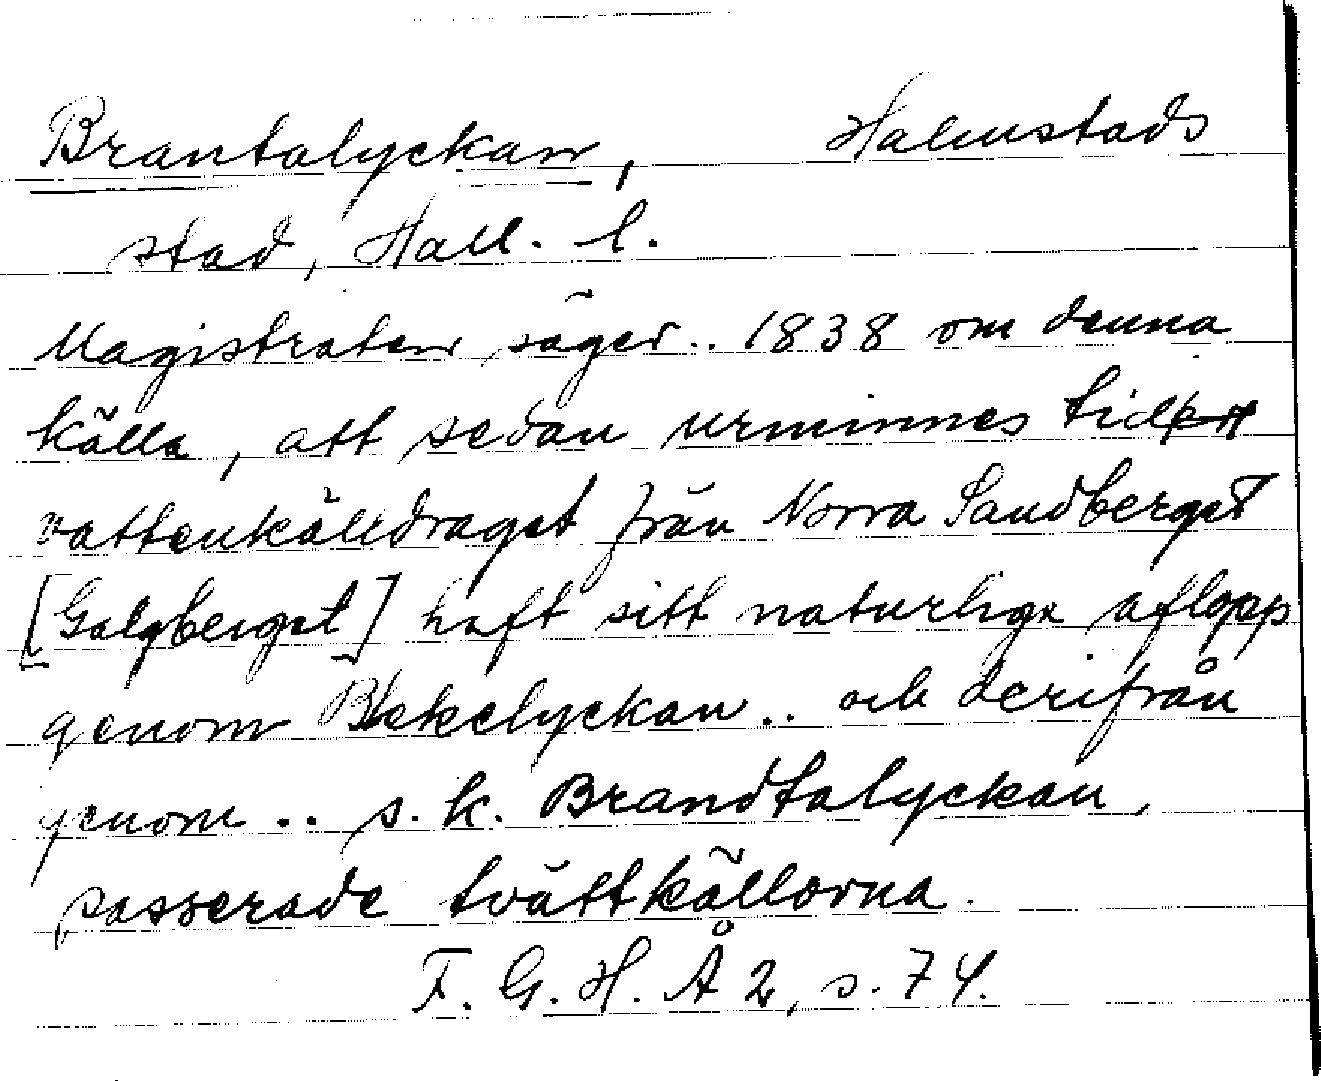 Brantalyckan, Halmstads
stad, Hall. l.
Magistraten säger.. 1838 om denna
källa, att sedan urminnes tid
vattenkälldraget från Norra Sandberget
[Galgberget] haft sitt naturliga aflopp
genom Blekelyckan.. och derifrån
genom .. s.k. Brandtalyckan,
passerade tvättkällorna.
F. G. H. Å 2, s. 74.